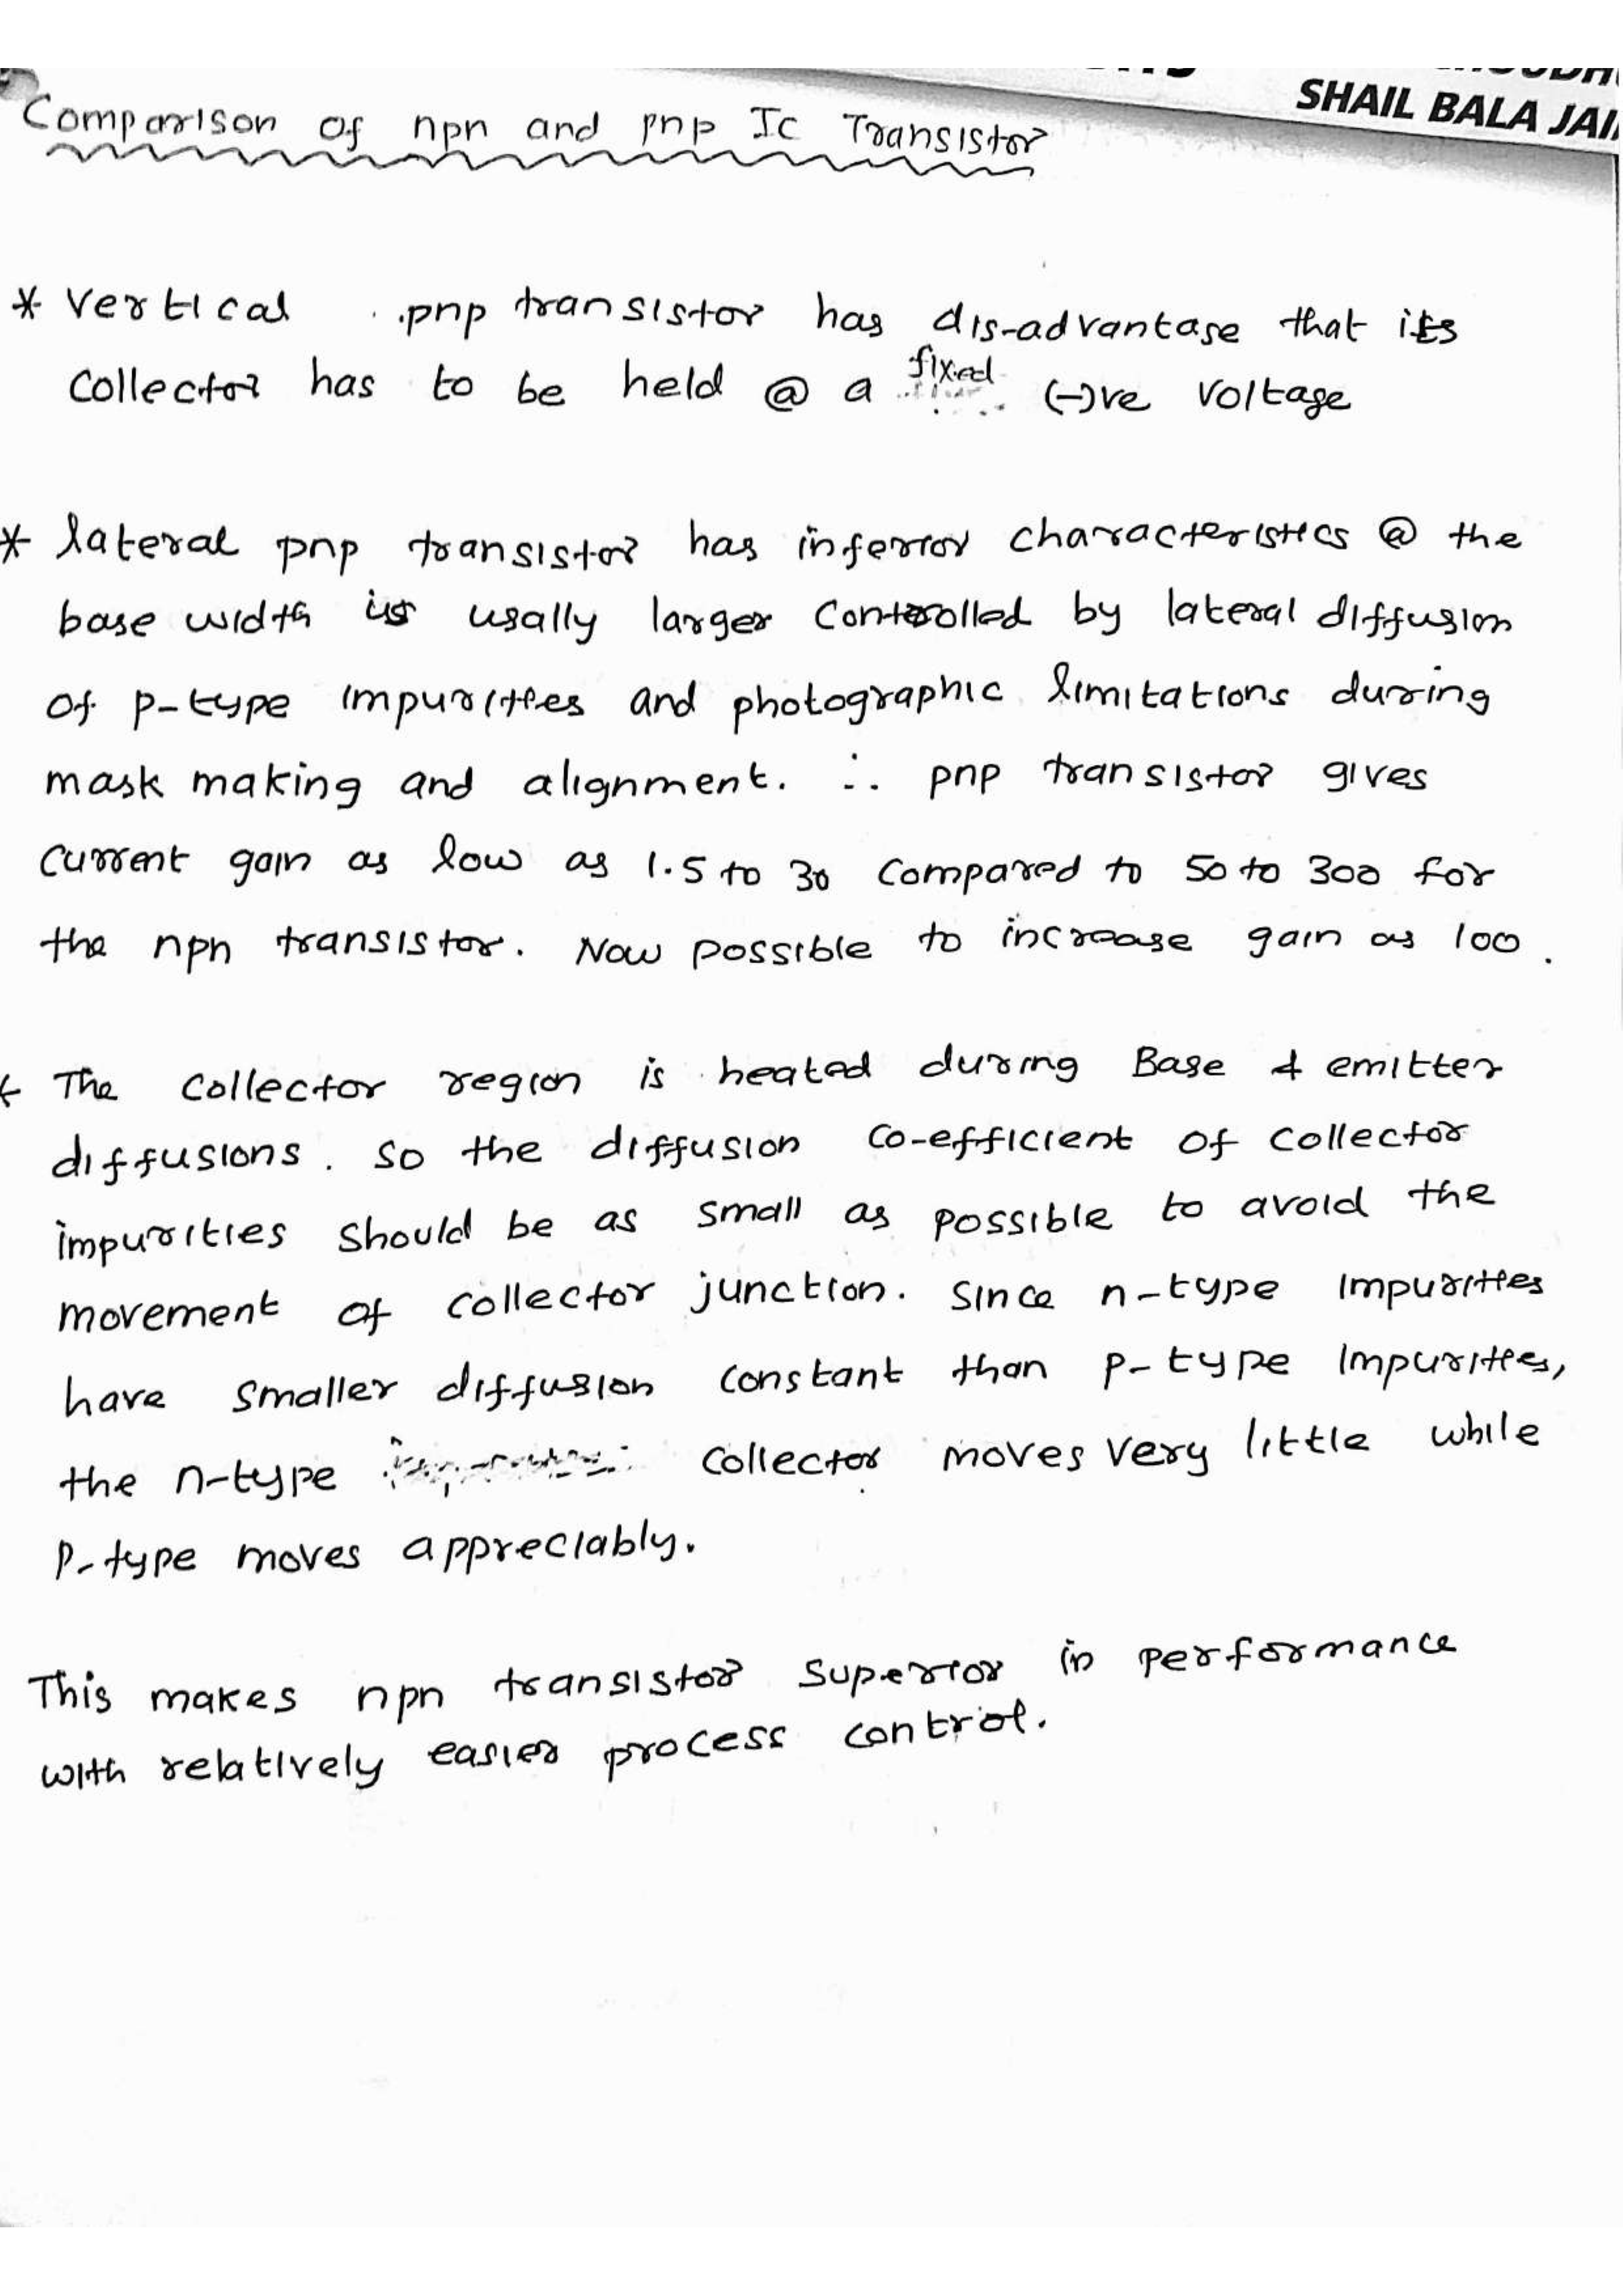 SHAIL BALA JAI
Comparison of npn and pnp Ic Transistor
* Vertical pnp transistor has dis-advantage that its
collector has to be held @ a fixed (-)ve voltage
* lateral pnp transistor has inferior characteristics @ the
base width is usally larger controlled by lateral diffusion
of p-type impurities and photographic limitations during
mask making and alignment. ∴ pnp transistor gives
current gain as low as 1.5 to 30 compared to 50 to 300 for
the npn transistor. Now possible to increase gain as 100.
* The collector region is heated during Base & emitter
diffusions. so the diffusion co-efficient of collector
impurities should be as small as possible to avoid the
movement of collector junction. since n-type impurities
have smaller diffusion constant than p-type impurities,
the n-type collector moves very little while
p-type moves appreciably.
This makes npn transistor superior in performance
with relatively easier process control.